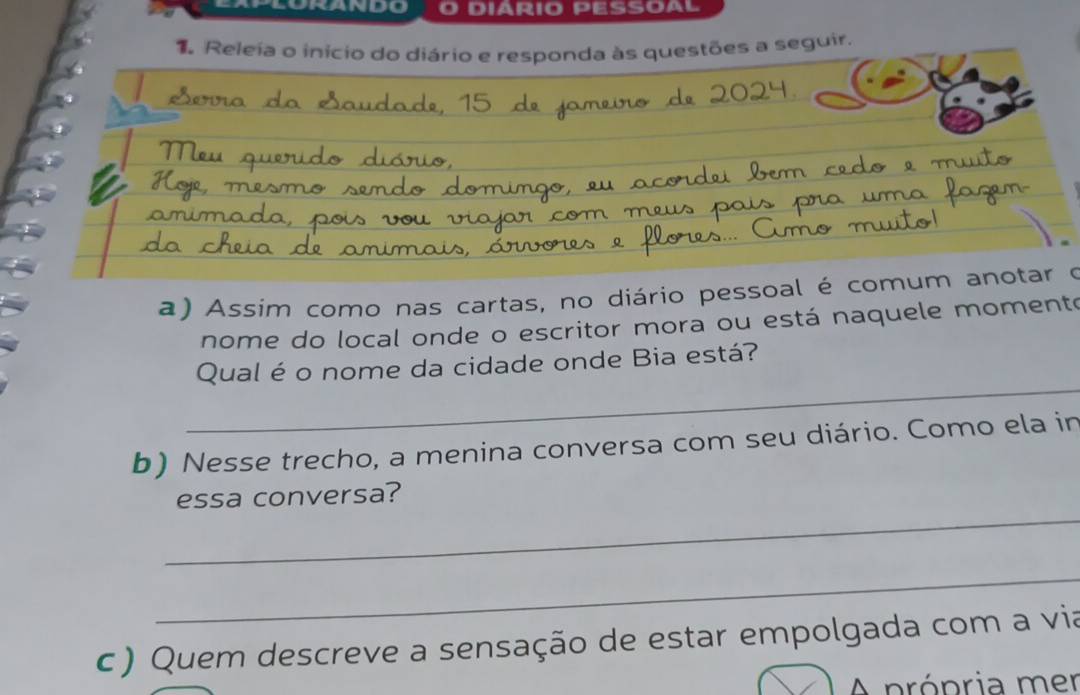 EXPLORANDO O DIÁRIO PESSOAL
1. Releia o início do diário e responda às questões a seguir.
Serra da Saudade, 15 de janeiro de 2024.
Meu querido diário,
Hoje, mesmo sendo domingo, eu acordei bem cedo e muito
animada, pois vou viajar com meus pais pra uma fazen-
da cheia de animais, árvores e flores... Amo muito!
a) Assim como nas cartas, no diário pessoal é comum anotar o
nome do local onde o escritor mora ou está naquele momento
Qual é o nome da cidade onde Bia está?
b) Nesse trecho, a menina conversa com seu diário. Como ela in
essa conversa?
c) Quem descreve a sensação de estar empolgada com a via
A própria men